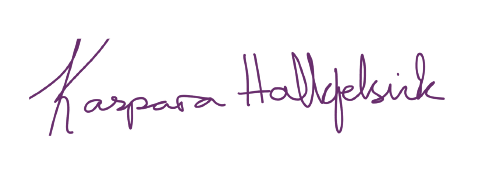 Kaspara Hallgjelsirk